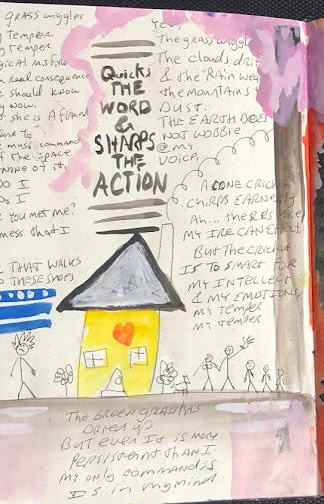 GRASS wiggles
y temper
y temper
gical mistake
a real consequence
e should know
y now.
at she is A flame
must command
of the space
none of it
Do I
Do I
e you met me?
mess that I
THAT WALKS
THESE SHOES
Quicks
THE
WORD
&
SHARPS
THE
ACTION
The grass wiggle
The clouds drif
& the Rain wea
the mountains
Dust.
THE EARTH DOES
NOT WOBBLE
@ my
voice
A lone crick
chirps earnestly
Ah...
my ire can effect
But the cricket
is to smart for
my intellect
& my emotions,
my temper
my temper
The green grass has
Dried up
But even it is more
Persistent than I
my only command is
Is in my mind